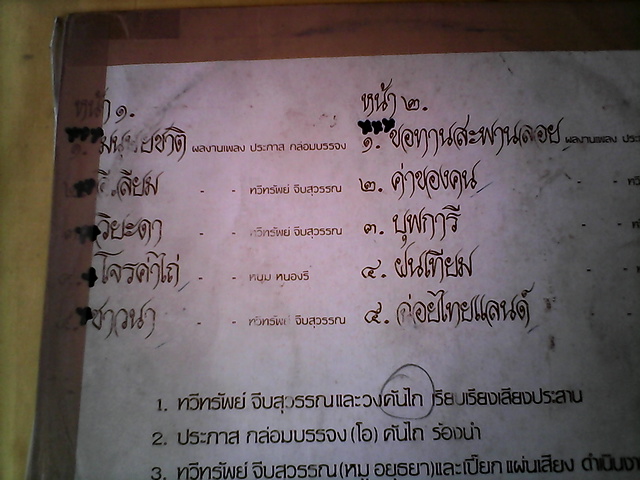 หน้า ๑.
มนุษยชาติ ผลงานเพลง ประภาส กล่อมบรรจง
- - ทวีทรัพย์ จีบสุวรรณ
วิยะดา - - ทวีทรัพย์ จีบสุวรรณ
โจรค้าไถ่ - - หนุ่ม หนองรี
ชาวนา - - ทวีทรัพย์ จีบสุวรรณ
หน้า ๒.
๑. ขอทานสะพานลอย ผลงานเพลง
๒. ค่าของคน -
๓. บุพการี -
๔. ฝนเทียม -
๕. ค่อยไทยแลนด์
1. ทวีทรัพย์ จีบสุวรรณและวงคันไถ เรียบเรียงเสียงประสาน
2. ประภาส กล่อมบรรจง (โอ) คันไถ ร้องนำ
3. ทวีทรัพย์ จีบสุวรรณ (หนุ่ม อยุธยา) และเปี๊ยก แผ่นเสียง